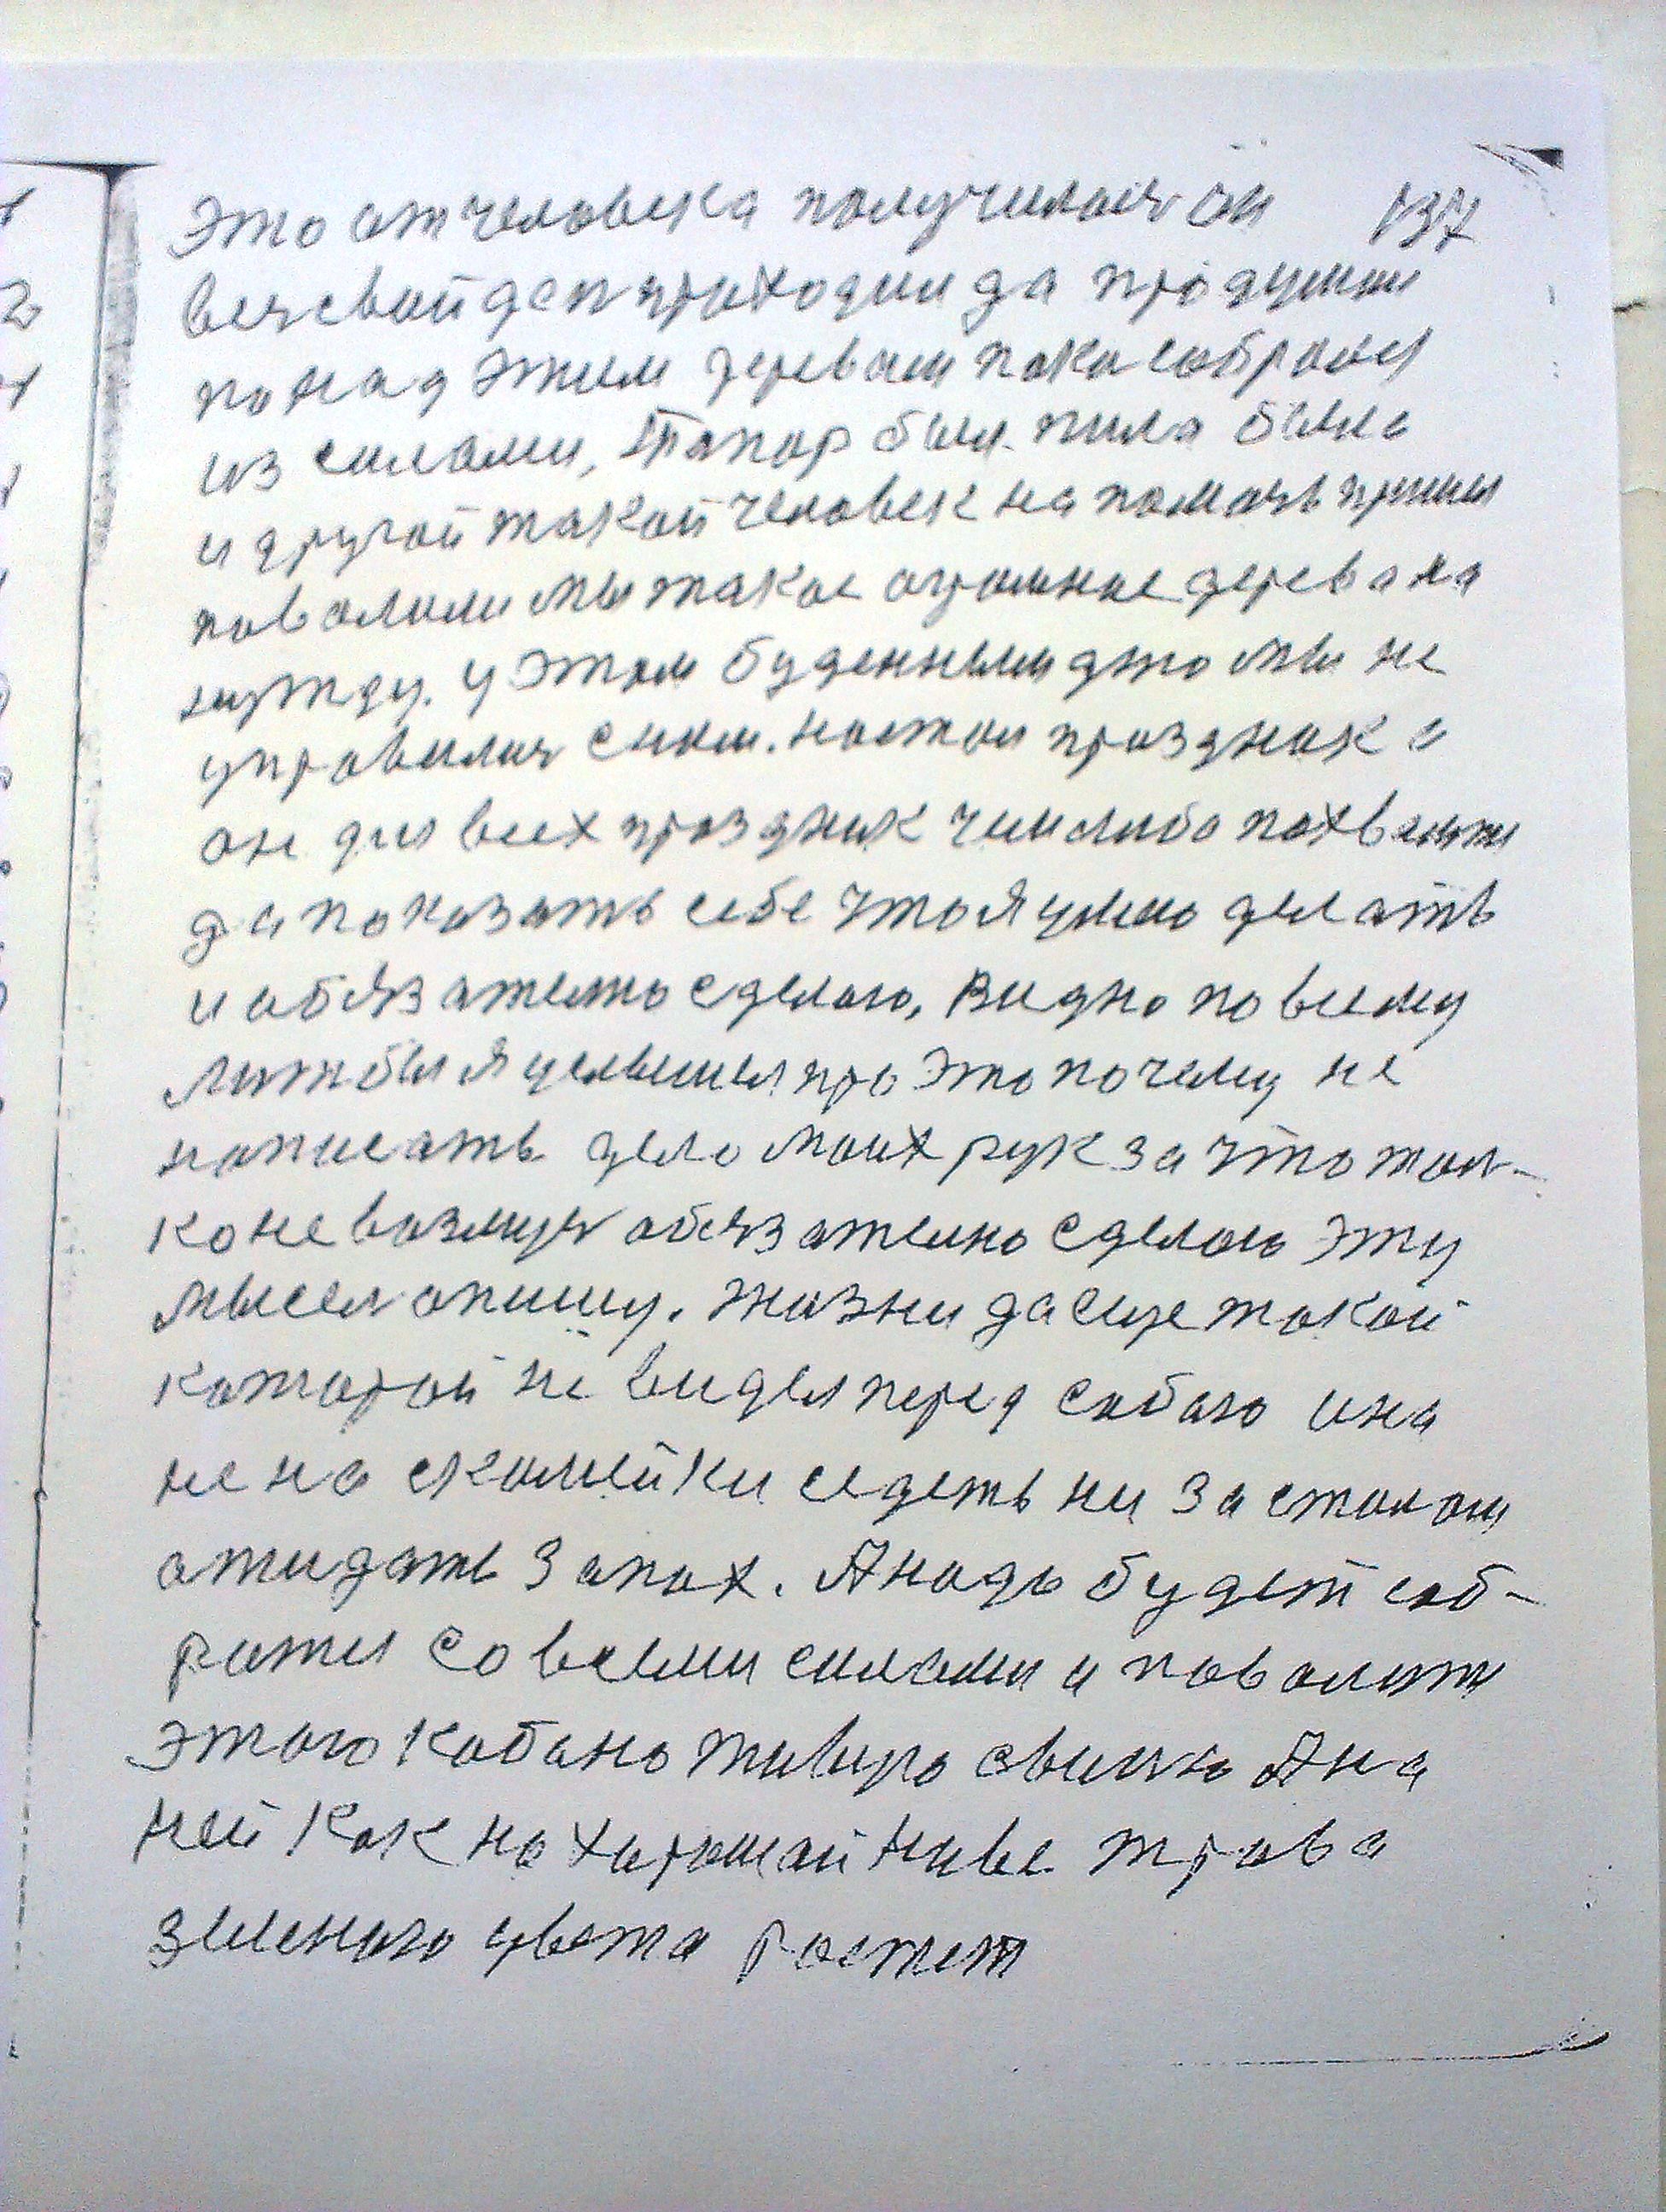 Это от человека получилось он 137
весь свой ден проходил да продумал
по над этим деревом пока собрался
из силами, Топор был пила была
и другой такой человек на помочь пришл
повалили мы такое огромное дерева на
нужду. у этом буденныи дни мы не
управились с ним. настал праздник а
он для всех праздник чим либо похвалитя
да показать себе что я умею делать
и обязательно сделаю, Видно по всему
лишбы я услышел про это почему не
написать дело моих рук за что тол-
ко не возмусь обязателно сделаю эту
мысел опишу. Жизни да еще такой
которой не видел перед собаю и на
не на скамейки седеть ни за столом
ожидать запах. А надо будет соб-
ратя со всеми силами и повалитя
этого кабана живую звиню А на
ней как на хорошай ниве трава
зеленого цвета ростет